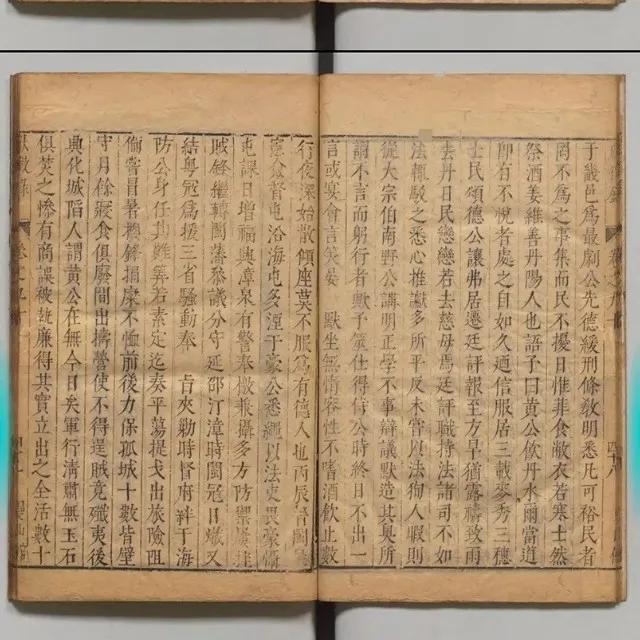 于戲邑為最劇公先德緩刑條敎明悉凡可裕民者
罔不為之事集而民不擾日惟菲食敝衣若寒士然
祭酒姜維善丹陽人也語予曰黃公飲丹水爾當道
即有不悅者處之自如久迺信服居三載麥秀三穗
士民頌德公讓弗居遷廷評報至方旱猶露禱致雨
去丹日民戀戀若去慈母焉廷評職持法諸司不如
法輒駁之悉心推讞多所平反未嘗以法狥人暇則
從大宗伯南野公講明正學不事辯議默造其奧所
謂不言而躬行者歟予筮仕得侍公時終日不出一
言或宴會言笑晏 默坐無惰容性不嗜酒飲止數
行夜深始散傾座莫不服為有德人也丙辰晉閩
僉督屯沿海屯多湮于豪公悉繩以法吏畏豪脩
屯課日增福興漳泉有警奉檄兼攝多方防禦
賊鋒繼轉閩藩叅議分守延邵汀漳時閩冦日熾又
結粵冦為援三省騷動奉 旨夾勦時督府絆于海
防公身任其難籌若素定迄奏平蕩提戈出旅險阻
備嘗冒暑擐鋒捐糜不恤前後力保孤城十數皆壁
守月餘寢食俱廢間出擣營使不得逞賊竟殲夷後
典化城陷人謂黃公在無今日矣軍行清肅無玉石
俱焚之慘有商誤被執廉得其實立出之全活數十
獻徵錄
卷之九十